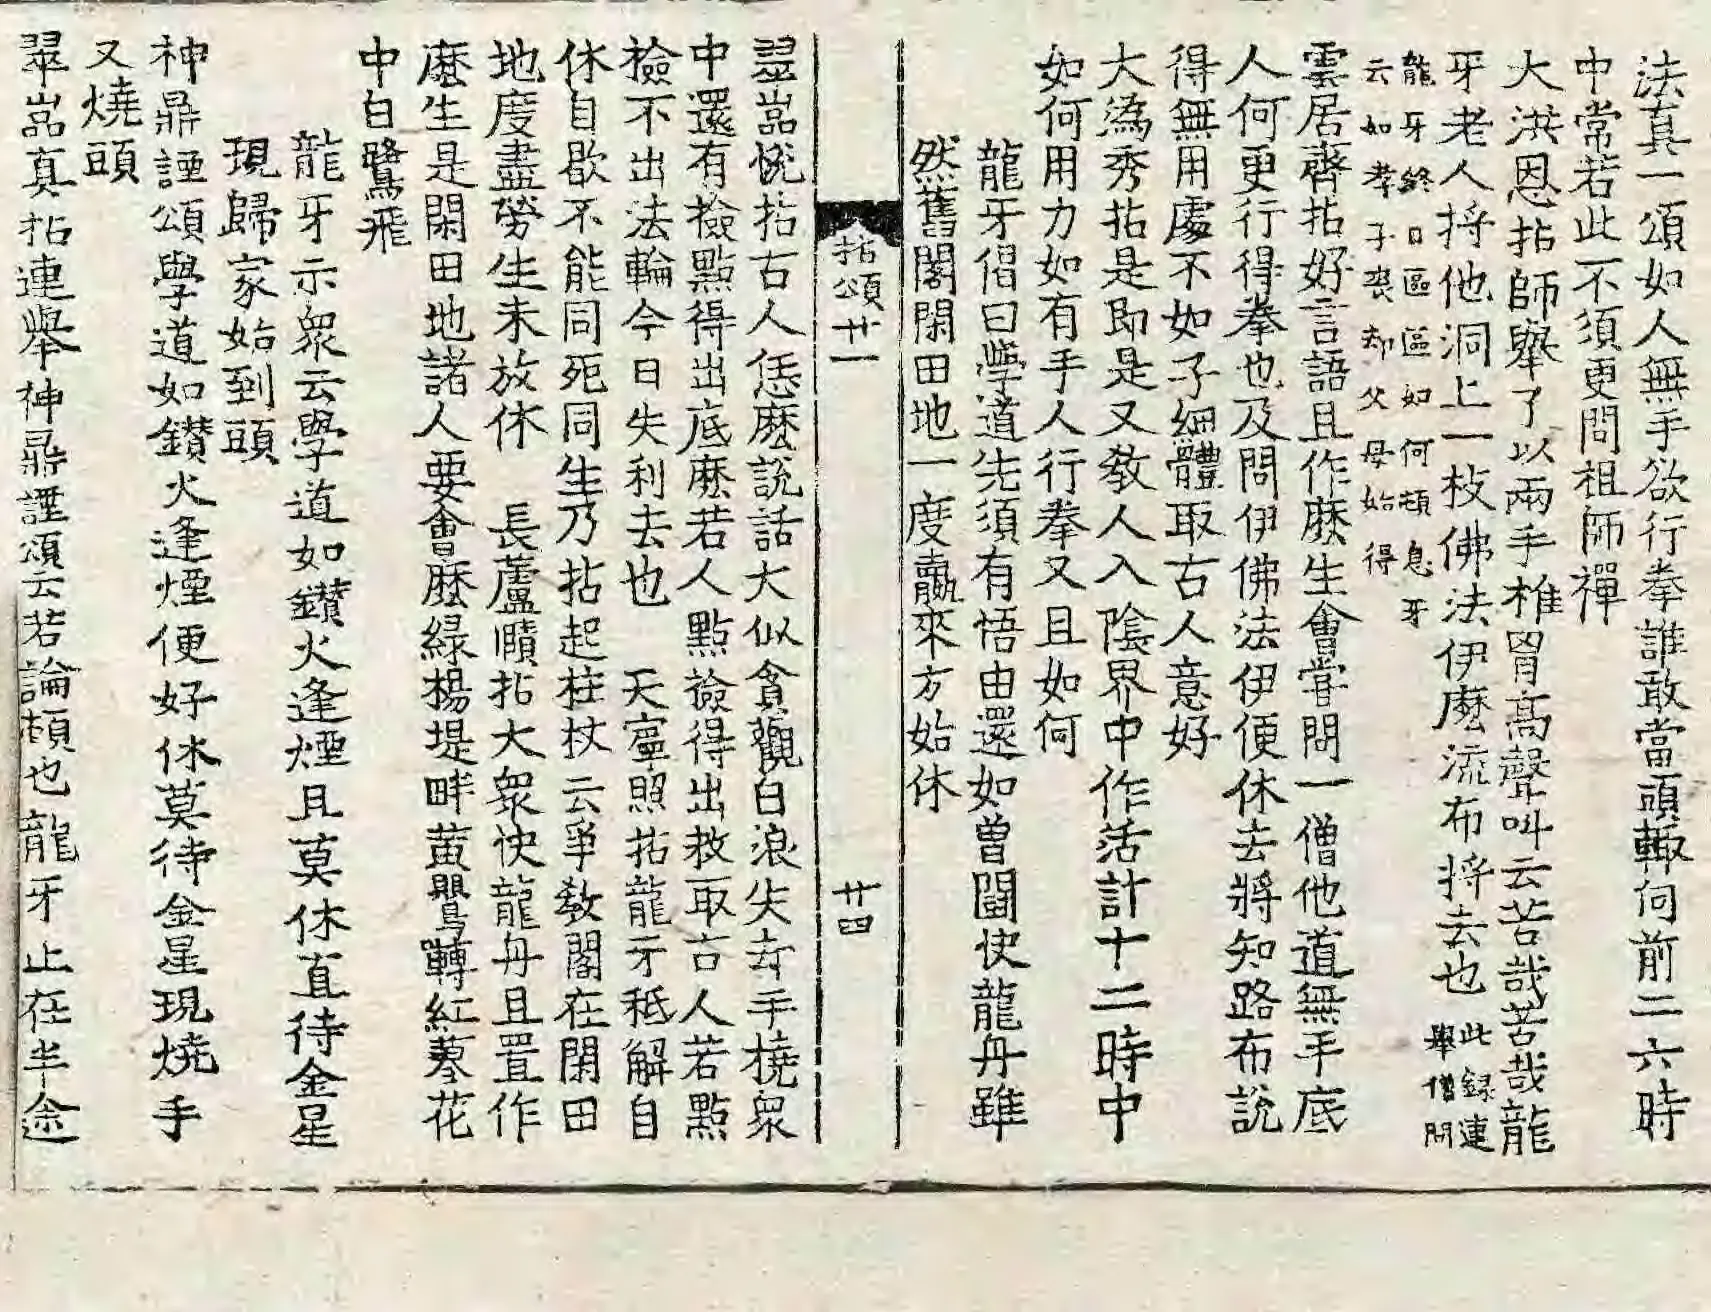 法真一頌如人無手欲行拳誰敢當頭輙向前二六時
中常若此不須更問祖師禪
大洪恩拈師舉了以兩手椎胷高聲叫云苦哉苦哉龍
牙老人將他洞上一枝佛法伊麽流布將去也此録連舉僧問
龍牙終日區區如何頓息牙
云如孝子喪却父母始得
雲居齊拈好言語且作麽生會甞問一僧他道無手底
人何更行得拳也及問伊佛法伊便休去將知路布說
得無用處不如子細體取古人意好
大潙秀拈是即是又敎人入陰界中作活計十二時中
如何用力如有手人行拳又且如何
龍牙偈曰學道先須有悟由還如曾鬪快龍舟雖
然舊閣閑田地一度贏來方始休
拈頌廿一
廿四
翠嵓悅拈古人恁麽說話大似貪觀白浪失却手橈衆
中還有撿點得出底麽若人點撿得出救取古人若點
撿不出法輪今日失利去也 天寧照拈龍牙秪解自
休自歇不能同死同生乃拈起柱杖云爭敎閣在閑田
地度盡勞生未放休 長蘆賾拈大衆快龍舟且置作
麽生是閑田地諸人要會麽綠楊堤畔黃鸎囀紅蓼花
中白鷺飛
龍牙示衆云學道如鑽火逢煙且莫休直待金星
現歸家始到頭
神鼎諲頌學道如鑽火逢煙便好休莫待金星現燒手
又燒頭
翠嵓真拈連舉神鼎諲頌云若論頓也龍牙止在半途